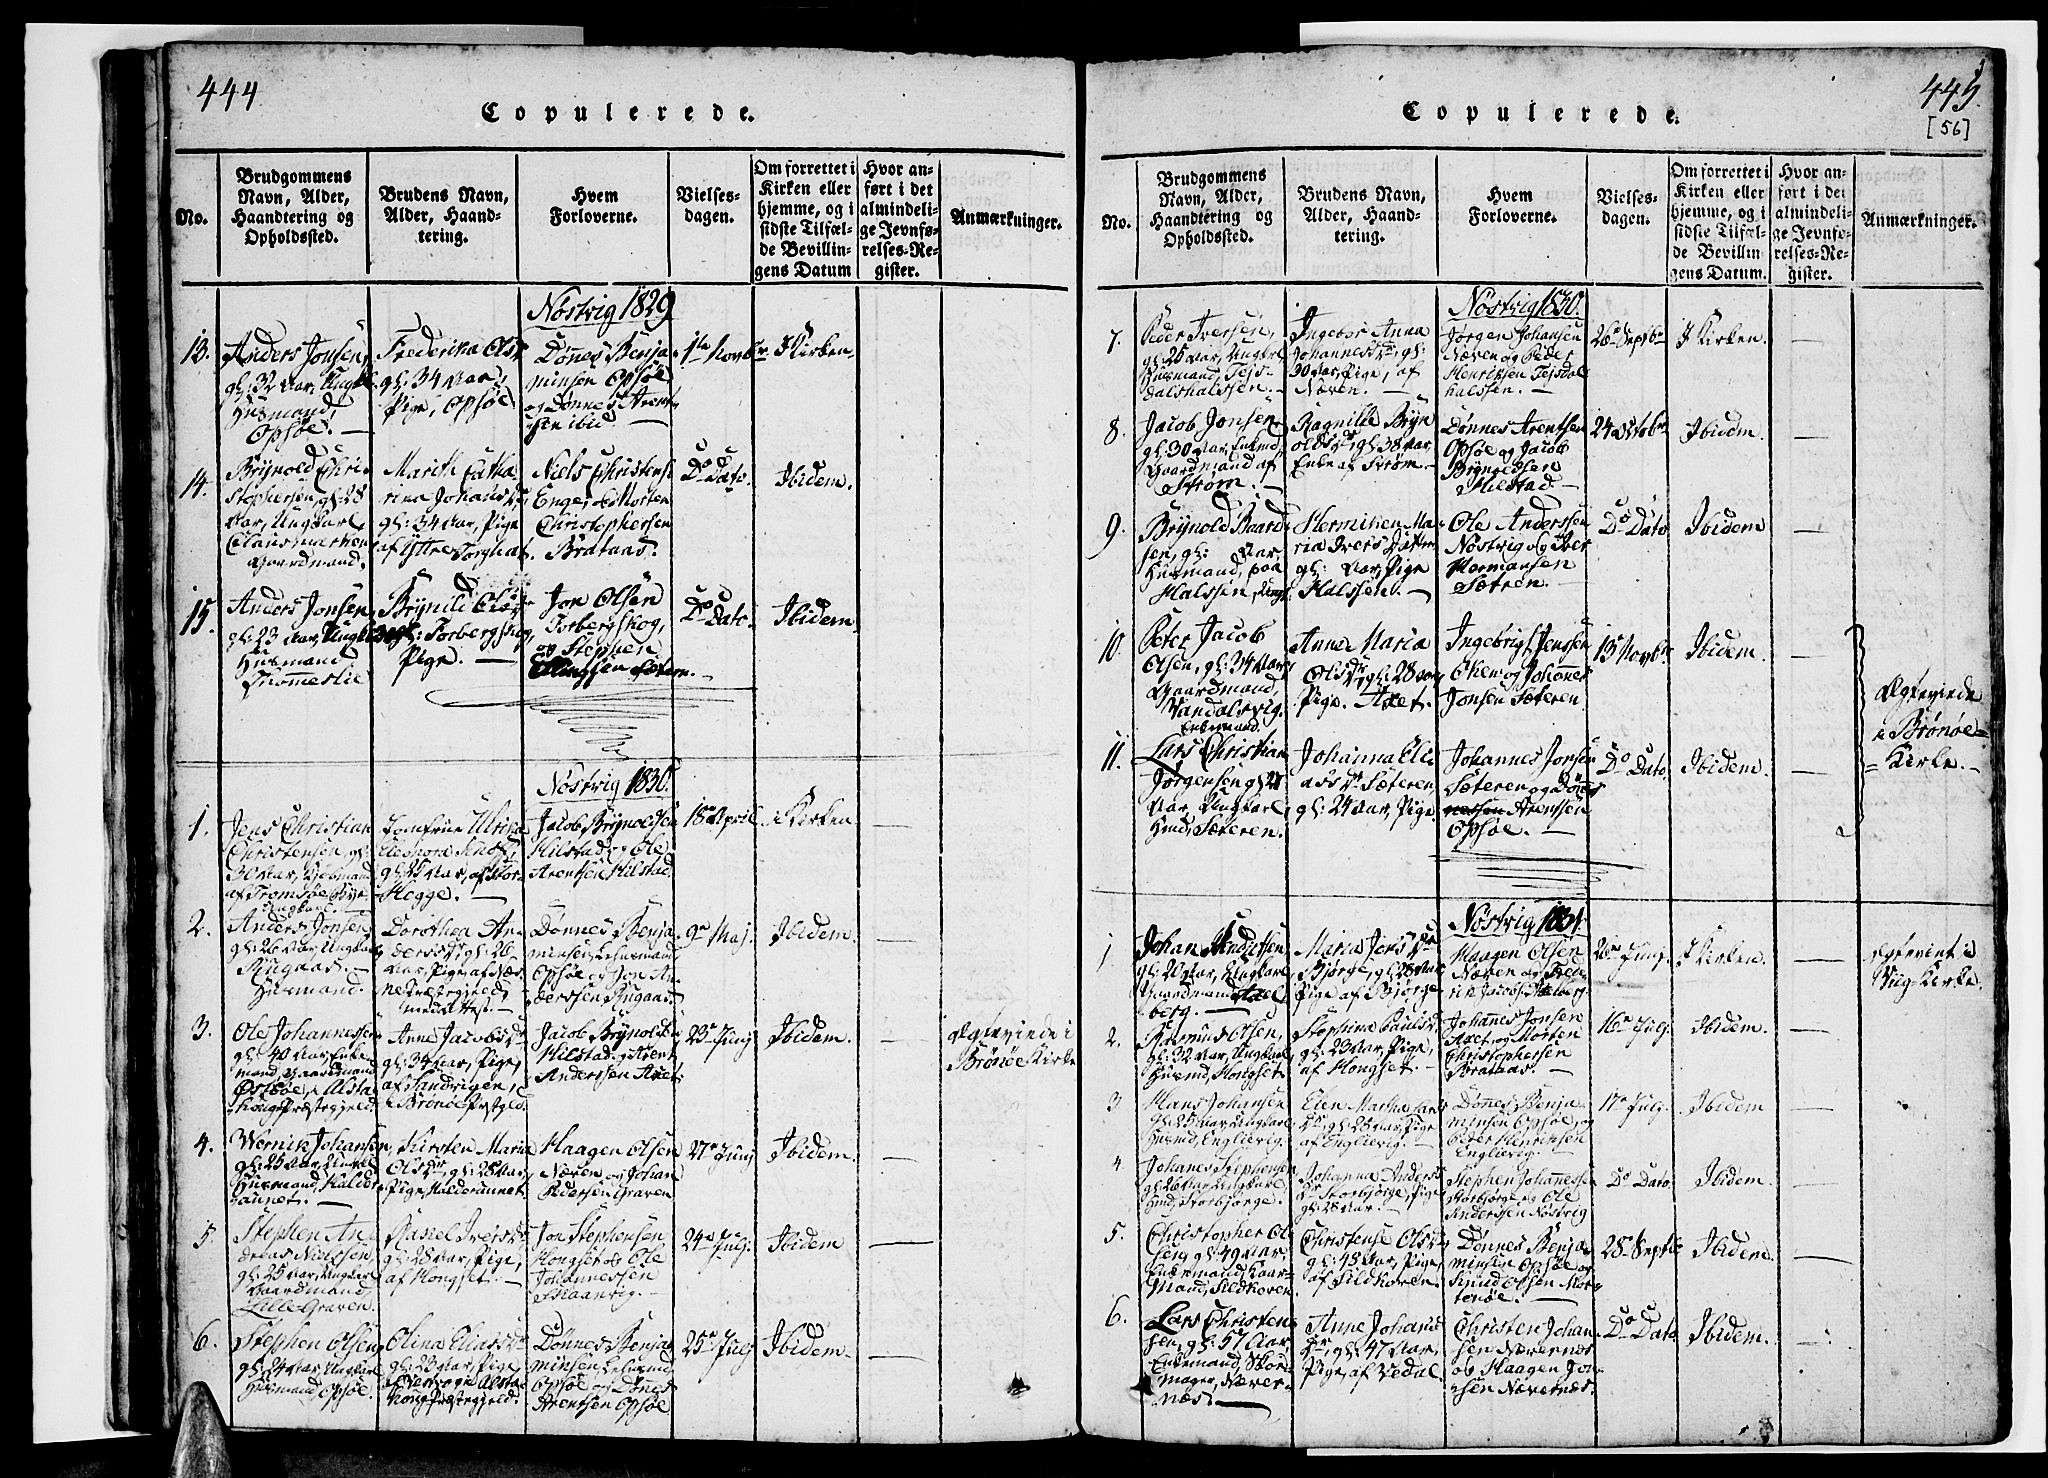 444
Copulerede.
No.
Brudgommens
Navn, Alder,
Haandtering og
Opholdssted.
Brudens Navn,
Alder, Haand-
tering.
Hvem
Forloverne.
Vielses-
dagen.
Om forrettet i
Kirken eller
hjemme, og i
sidste Tilfæl-
de Bevillin-
gens Datum
Hvor an-
ført i det
almindeli-
ge Jevnfø-
relses-Re-
gister.
Anmærkninger.
Nöstvig 1829
13.
Anders Jonsen,
gl: 32 Aar, Ungk
Huusmand,
Opsöe.
Frederika Ols
gl: 34 Aar,
Pige, Opsöe
Dönnes Benja-
minsen Opsöe
og Dönnes Arent-
sen ibid
1te Novbr
I Kirken
14.
Brynold Chri-
stophersen, gl: 28
Aar, Ungkarl
Gaardmand.
Marith Catha-
rina Johans Dr,
gl: 34 Aar, Pige
af Yttre Torghat.
Niels Christens
Enge, og Morten
Christophersen
Brataas.
Do Dato
Ibidem.
15.
Anders Jonsen,
gl: 23 Aar, Ungk
Huusmand
Trommeslie
Torbergskog,
Pige.
Jon Olsen
Torbergskog,
og Stephen
Ellingsen Sæteren.
Do Dato.
Ibidem.
Nöstvig 1830.
1.
Jens Christian
Christensen, gl:
30 Aar,
af Tromsöe Bye
Ungkarl.
Jomfrue Ulrika
Eleonora
gl: 25 Aar, af Stor-
Hegge.
Jacob Brynoldsen
Hilstad og Ole
Arentsen Hilstad.
18de April
i Kirken
2.
Anders Jonsen
gl: 26 Aar, Ungkarl
Huusmand.
Dorothea An-
ders Dr, gl: 26
Aar, Pige, af Næs-
ne Præstegjeld,
med Attest.
Dönnes Benja-
minsen, Lehnsmand
Opsöe og Jon An-
derssen
9de Maj.
Ibidem.
3.
Ole Johannessen
gl: 40 Aar, Enke-
mand, Gaardmand
i Alsta-
houg Præstegjeld.
Anne Jacobs Dr
gl: 34 Aar, Pige,
af Sandvigen,
i Brönöe Præstgld.
Jacob Brynoldsen
Hilstad. og Arent
Anderssen Axet
23de Junj
Ibidem.
Ægteviede i
Brönöe Kirke
4.
Wernik Johansen
gl: 25 Aar, Ungkl
Huusmand, Halder-
aunet.
Kirsten Maria
Ols Dr, gl: 28 Aar,
Pige, Halderaunet.
Haagen Olsen
Næven og Johan
Pedersen Graven
27de Junj
Ibidem.
5.
Stephen An-
dreas Nielssen,
gl: 25 Aar, Ungkarl
Gaardmand,
Lille Graven.
Rasel Ivers Dr
gl: 28 Aar, Pige,
af Hongset.
Jon Stephensen
Hongset og Ole
Johannessen
Skaanvig.
24de Julj.
Ibidem
6.
Stephen Olsen
gl: 24 Aar, Ungkarl
Huusmand Opsöe.
Olina Elias Dr
gl: 23 Aar, Pige
Alsta-
houg Præstegjeld.
Dönnes Benja-
minsen Lehnsmd
Opsöe og Dönnes
Arentsen Opsöe
25de Julj
Ibidem.
445.
[56]
Copulerede.
No.
Brudgommens
Navn, Alder,
Haandtering og
Opholdssted.
Brudens Navn,
Alder, Haand-
tering.
Hvem
Forloverne.
Vielses-
dagen.
Om forrettet i
Kirken eller
hjemme, og i
sidste Tilfæl-
de Bevillin-
gens Datum.
Hvor an-
ført i det
almindeli-
ge Jevnfø-
relses-Re-
gister.
Anmærkninger.
Nöstvig 1830.
7.
Peder Iversen,
gl: 25 Aar, Ungkarl
Huusmand, Tejs-
dalshalssen.
Ingebor Anna
Johannes Dr, gl:
30 Aar, Pige, af
Næven.
Jörgen Johansen
Næven og Peder
Henriksen Tejsdal
halssen.
26de Septbr
I Kirken.
8.
Jacob Jonsen
gl: 30 Aar, Enkemd,
Gaardmand af
Ström.
Ragnille Bryn-
olds Dr, gl: 38 Aar,
Enke af Ström.
Dönnes Arentsen
Opsöe og Jacob
Brynoldsen
Hilstad.
24de Octobr
Ibidem.
9.
Brynold Baard-
sen, gl: Aar,
Huusmand, paa
Halssen, Ungk
Hermikien Ma-
ria Ivers Datter
gl: Aar, Pige
Halssen.
Ole Anderssen
Nöstvig og Iver
Hermansen
Sæteren.
Do Dato
Ibidem
10.
Peter Jacob
Olsen, gl: 34 Aar
Gaardmand,
Vandalsvig.
Enkemand.
Anne Maria
Ols Dr, gl: 28 Aar
Pige. Axet.
Ingebrigt Jenssen
og Johannes
Jonsen Sæteren
13de Novbr
Ibidem.
11.
Lars Christian
Jörgensen gl: 21
Aar, Ungkarl
Huusmd, Sæteren.
Johanna Eli-
as Dr Sæteren,
gl: 24 Aar, Pige
Johannes Jonsen
Sæteren og Dönnes
Arentsen
Opsöe.
Do Dato
Ibidem.
Ægteviede
i Brönöe-
Kirke.
Nöstvig 1831.
1
Johan Andersen
gl: 20 Aar, Ungkarl
Gaardmand Axel-
berg.
Maria Jens Dr
Bjørge, gl: 28 Aar
Pige af Bjørge
Haagen Olsen
Næven og Frede-
rik Jacobs. Axelberg.
26de Junj.
I Kirken.
Ægteviet i
Viig-Kirke.
2.
Rasmus Olsen,
gl: 32 Aar, Ungkarl
Huusmd, Hongset.
Stephina Pauls D.
gl: 23 Aar, Pige,
af Hongset.
Johannes Jonsen
Axet, og Morten
Christophersen
Brataas.
16de Julj.
Ibidem.
3
Hans Johansen
gl: 25 Aar, Ungkarl
Huusmd, Englievig.
Elen Martha Lars
Dr, gl: 28 Aar, Pige
af Englievig.
Dönnes Benja-
minsen Opsöe, og
Peter Henriksen
Englievig.
17de Julj.
Ibidem
4.
Johanes Stephensen
gl: 26 Aar, Ungkarl
Huusmd, Storbjørge.
Johanna Anders
Dr Storbjørge, Pige
gl: 28 Aar.
Stephen Johannessen
Storbjørge og Ole
Anderssen Nöstvig
Do Dato.
Ibidem.
5.
Christopher Ol-
sen gl: 49 Aar,
Enkemand Gaard-
mand, Sildkoven.
Christense Ols Dr
gl: 45 Aar, Pige,
af Sildkoven.
Dönnes Benja-
minsen Opsöe og
Knud Olsen Mor-
tenöe.
28de Septbr
Ibidem.
6.
Lars Christen-
sen, gl: 57 Aar,
Enkemand, Skoe-
mager, Nærer-
næs.
Anne Johans
Dr, gl: 47 Aar,
Pige, af Vedal.
Christen Johan-
sen Nærernæs
og Haagen Jon-
sen Nærernæs.
Do Dato
Ibidem.